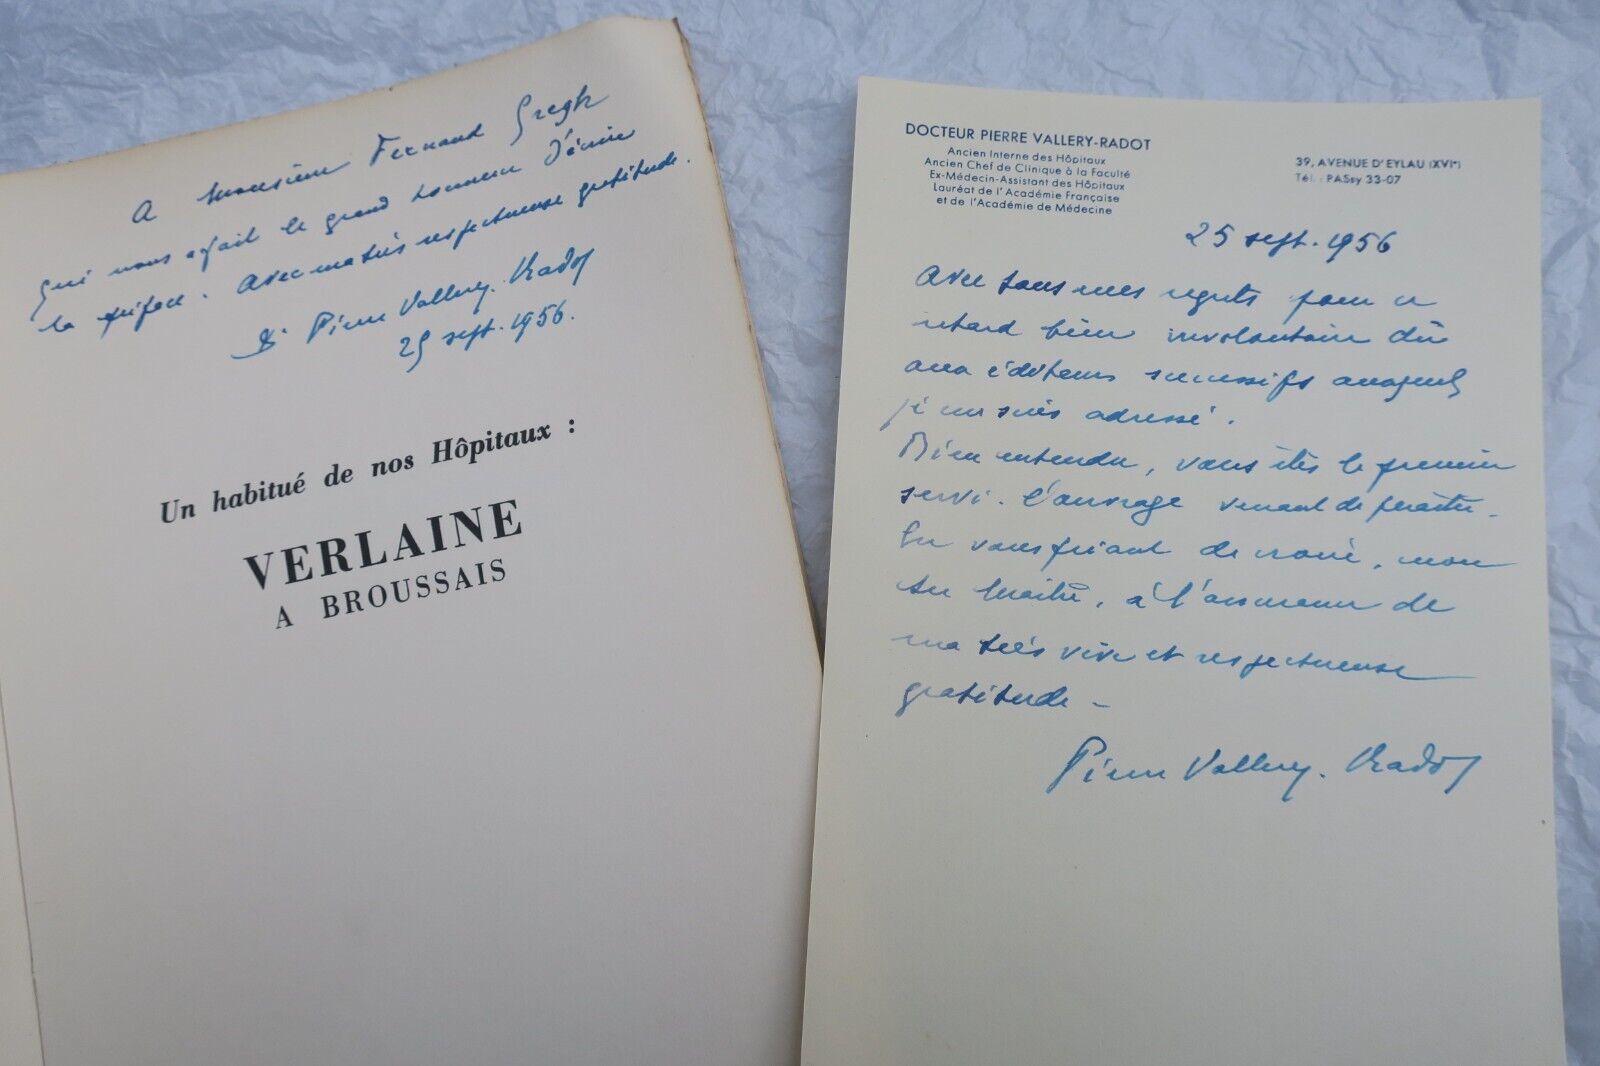 A Monsieur Fernand Gregh
qui nous a fait le grand honneur d'écrire
la préface. Avec ma très respectueuse gratitude.
Dr Pierre Vallery-Radot
25 sept. 1956.
Un habitué de nos Hôpitaux :
VERLAINE
A BROUSSAIS
DOCTEUR PIERRE VALLERY-RADOT
Ancien Interne des Hôpitaux
Ancien Chef de Clinique à la Faculté
Ex-Médecin-Assistant des Hôpitaux
Lauréat de l'Académie Française
et de l'Académie de Médecine
39, AVENUE D'EYLAU (XVIe)
Tél. : PASsy 33-07
25 sept. 1956
Avec tous mes regrets pour ce
retard bien involontaire dû
aux éditeurs successifs auxquels
je me suis adressé.
Bien entendu, vous êtes le premier
servi. L'ouvrage venant de paraître.
En vous priant de croire, mon
cher Maître, à l'assurance de
ma très vive et respectueuse
gratitude -
Pierre Vallery-Radot